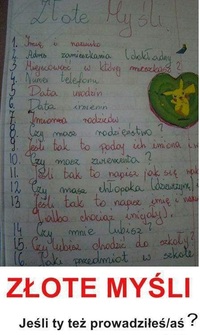 Złote Myśli
1. Imię i nazwisko
2. Adres zamieszkania (dokładny)
3. Miejscowość w której mieszkasz?
4. Numer telefonu
5. Data urodzin
6. Data imienin
7. Imiona rodziców
8. Czy masz rodzeństwo?
9. Jeśli tak to podaj ich imiona i
10. Czy masz zwierzęta?
11. Jeśli tak to napisz jak się
12. Czy masz chłopaka
13. Jeśli tak to napisz imię i
(albo chociaż inicjały).
14. Czy mnie lubisz?
15. Czy lubisz chodzić do szkoły?
16. Jaki przedmiot w szkole
ZŁOTE MYŚLI
Jeśli ty też prowadziłeś/aś?